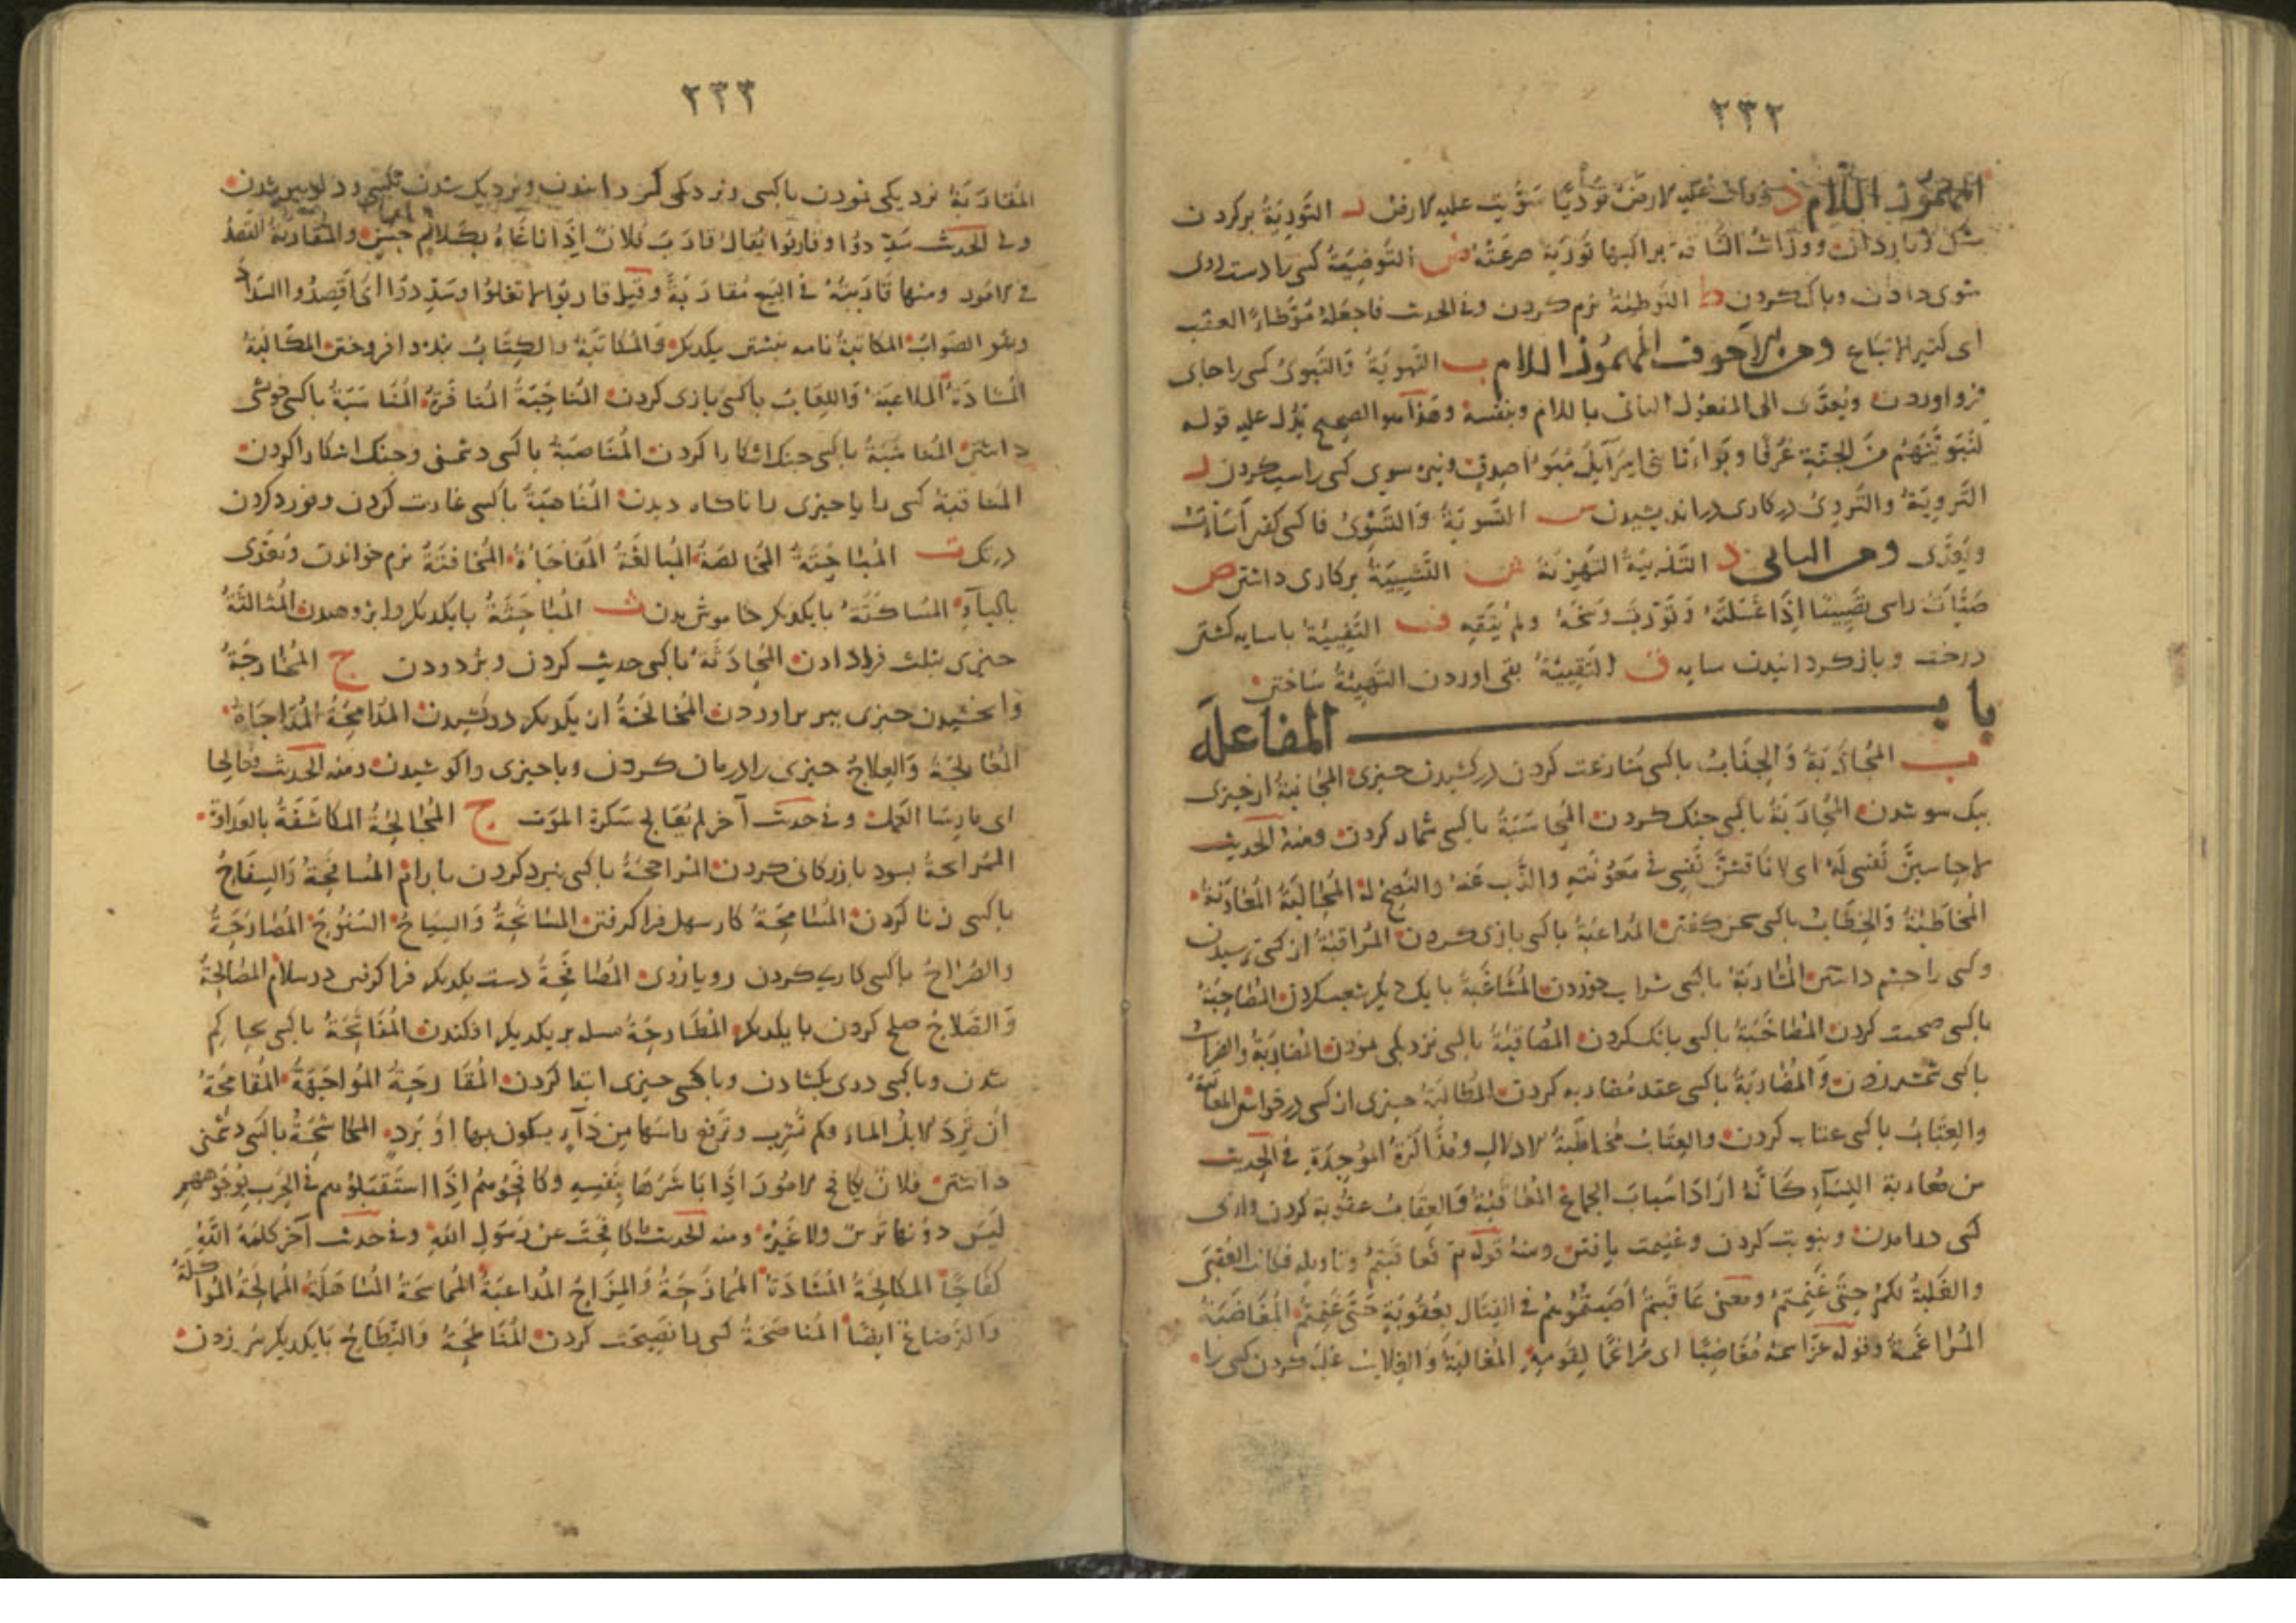 ٢٣٢
المهموز اللام د ودات عليه الارض تودّيًا سوّيت عليه الارض ر التورية بركردن
التوضية كسى را دست اوى
شوى دادن وپاك كردن ط التوطئة نرم كردن وفى الحديث فاجعله موطّأ العقب
اى كثير الاتباع ومن الاجوف المهموز اللام ب التهوية والتبوئ كسى را جاى
فرو اوردن ويعدّى الى المفعول الثانى باللام وبنفسه وهذا هو الصحيح يدل عليه قوله
لنبوّئنّهم من الجنة غرفا وبوّأنا بنى اسرآيل مبوّأ صدق ونيزه سوى كسى راست كردن ر
التروية والتروئ در كارى در انديشيدن س التسوية والتسوئ فا كسى گفتن اسأت
ويعدّى ومن اليائى د التذيية التهرئة ش التشيية بر كارى داشتن ص
صيّأت راسى تصييئا اذا غسلته وثوّرت وسخه ولم ينقه ف التفيية با سايه گشتن
درخت وباز گردانيدن سايه ق التقيية بقى اوردن التهيئة ساختن
باب المفاعلة
ب المجاذبة والجذاب با كسى منازعت كردن در كشيدن چيزى المجانبة از چيزى
بيك سو شدن المحاربة با كسى جنگ كردن المحاسبة با كسى شمار كردن ومنه الحديث
لاحاسبنّ نفسى له اى لا ناقشنّ نفسى فى معونته والذب عنه والنصح له المحالبة المعاونة
المخاطبة والخطاب با كسى سخن گفتن المداعبة با كسى بازى كردن المراقبة از كسى ترسيدن
وكسى را چشم داشتن المشاربة با كسى شراب خوردن المشاغبة با يك ديگر شغب كردن المصاحبة
با كسى صحبت كردن المصاخبة با كسى بانگ كردن المصاقبة با كسى نزديكى نمودن المضاربة والضراب
با كسى شمشير زدن والمضاربة با كسى عقد مضاربه كردن المطالبة چيزى از كسى در خواستن المعاتبة
والعتاب با كسى عتاب كردن والعتاب مخاطبة الادلال ومذاكرة الموجدة فى الحديث
من معاربة النسآء كانّه اراد اسباب الجماع المعاقبة والعقاب عقوبة كردن واز پى
كسى درامدن وبنوبت كردن وغنيمت يافتن ومنه قوله تع فعاقبتم وتاويله فكانت العقبى
والغلبة لكم حتى غنمتم ومعنى عاقبتم اصبتموهم فى القتال بعقوبة حتى غنمتم المغاضبة
المراغمة وقوله عزّ اسمه مغاضبًا اى مراغمًا لقومه المغالبة والغلاب غلبه كردن كسى را
٢٣٣
المقاربة نزديكى نمودن با كسى ونزديكى گردانيدن ونزديك شدن
وفى الحديث سدّدوا وقاربوا يقال قارب فلان اذا ناغاه بكلام حسن والمقاربة القصد
فى الامور ومنها قاربته فى البيع مقاربة وقيل قاربوا لا تغلوا وسدّدوا اى اقصدوا السداد
وهو الصواب المكاتبة نامه نبشتن بيكديگر والمكاتبة والكتاب بنده وا فروختن المكالبة
المشادة الملاعبة واللعاب با كسى بازى كردن المناجبة المنافرة المناسبة با كسى خويشى
داشتن المناشبة با كسى جنگ اشكارا كردن المناصبة با كسى دشمنى وجنگ اشكارا كردن
المناقبة كسى را يا چيزى را ناگاه ديدن المناهبة با كسى غارت كردن ونورد كردن
درتك ت المباحتة المخالصة المبالغتة المفاجاة المخافتة نرم خواندن ويعدّى
بالبآء المساكتة با يكديگر خاموش بدن ث المباحثة با يكديگر وا پژوهيدن المثالثة
چيزى بثلث فرا دادن المحادثة با كسى حديث كردن وبزدودن ج المخارجة
وا بخشيدن چيزى بير براوردن المخالجة از يكديگر در كشيدن المدامجة المداجاة
المعالجة والعلاج چيزى را درمان كردن وبا چيزى وا كوشيدن ومنه الحديث وعالجا
اى مارسا العمل وفى حديث آخر لم تعالج سكرة الموت ح المجالحة المكاشفة بالعداوة
المرابحة بسود بازرگانى كردن المرامحة با كسى نبرد كردن المسافحة والسفاح
با كسى زنا كردن المسامحة كار سهل فرا گرفتن المسانحة والسياح السنوح المصارحة
والصراح با كسى كارى كردن روياروى المصافحة دست يكديگر فرا گرفتن در سلام المصالحة
والصلاح صلح كردن با يكديگر المطارحة مسله بر يكديگر افكندن المفاتحة با كسى بحاكم
شدن وبا كسى درى بگشادن وبا كسى چيزى ابتدا كردن المقارحة المواجهة المقامحة
ان ترد الابل الماء ولم تشرب وترفع راسها من دآء يكون بها او برد المكاشحة با كسى دشمنى
داشتن فلان يكافح الامور اذا باشرها بنفسه وكافحوهم اذا استقبلوهم فى الحرب بوجوههم
ليس دونها ترس ولا غيره ومنه الحديث ما كافحت عن رسول الله وفى حديث آخر كلمه الله
كفاحًا المكالحة المشادة الممازحة والمزاح المداعبة المماسحة المساهلة الممالحة المواكلة
والرضاع ايضًا المناصحة كسى را نصيحت كردن المناطحة والنطاح با يكديگر سر زدن